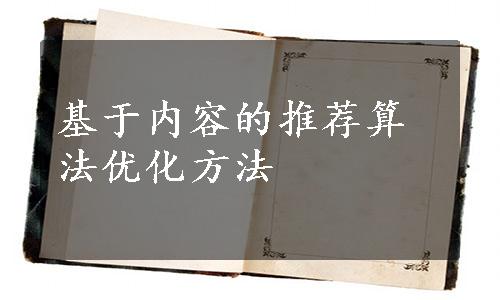 基于内容的推荐算
法优化方法